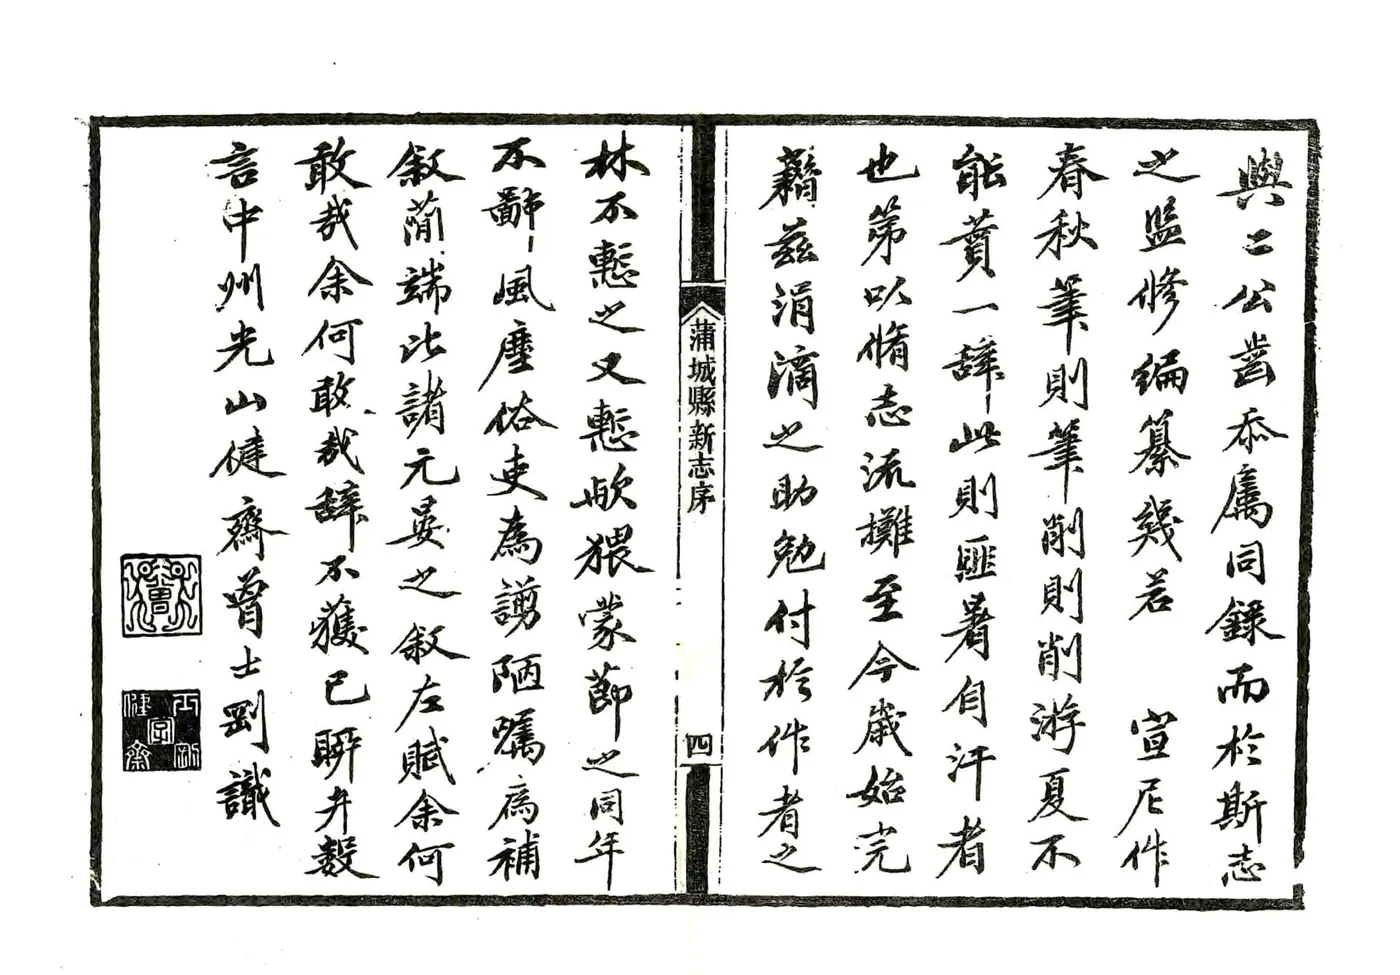 與二公齒忝雁同錄而於斯志
之監修編纂幾若　宣尼作
春秋筆則筆削則削游夏不
能贊一辭此則匪署自汗者
也第以脩志流攤至今歲始完
藉茲涓滴之助勉付於作者之
蒲城縣新志序
四
林不慙之又慙歟猥蒙節之同年
不鄙風塵俗吏為謭陋囑為補
敘簡端比諸元晏之敘左賦余何
敢哉余何敢哉辭不獲已聊弁數
言中州光山健齋曾士剛識
曾
士剛
字
健齋